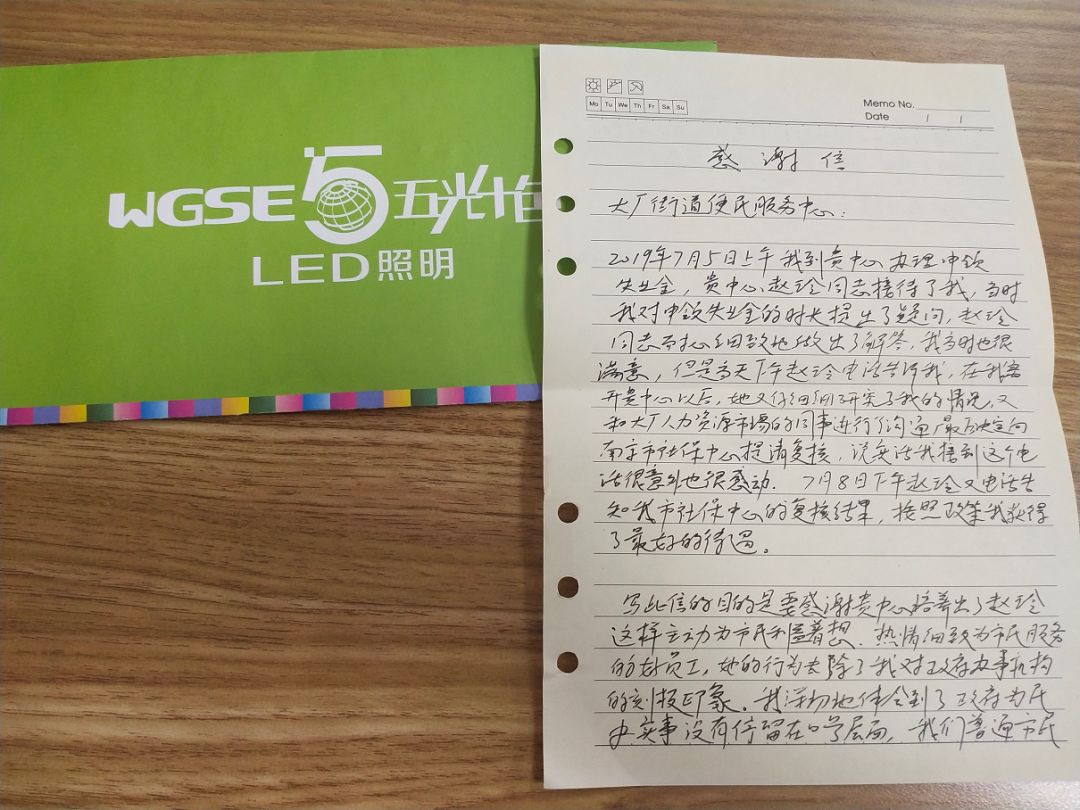 WGSE 5 五光十色
LED照明
Mo Tu We Th Fr Sa Su
Memo No.
Date / /
感谢信
大厂街道便民服务中心:
2019年7月5日上午我到贵中心办理申领
失业金,贵中心赵玲同志接待了我,当时
我对申领失业金的时长提出了疑问,赵玲
同志耐心细致地做出了解答,我当时也很
满意,但是当天下午赵玲电话告诉我,在我离
开贵中心以后,她又仔细研究了我的情况,又
和大厂人力资源市场的同事进行了沟通,最后决定向
南京市社保中心提请复核,说实话我接到这个电
话很意外也很感动.7月8日下午赵玲又电话告
知我市社保中心的复核结果,按照政策我获得
了最好的待遇。
写此信的目的是要感谢贵中心培养出了赵玲
这样主动为市民利益着想.热情细致为市民服务
的好员工,她的行为去除了我对政府办事机构
的刻板印象.我深切地体会到了政府为民
办实事没有停留在口号层面,我们普通市民